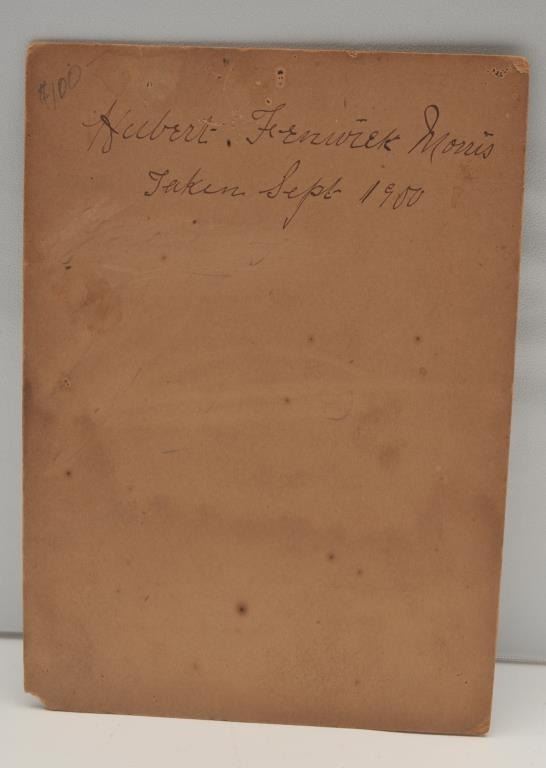 $100
Hubert. Fenwick Morris
Taken Sept 1900